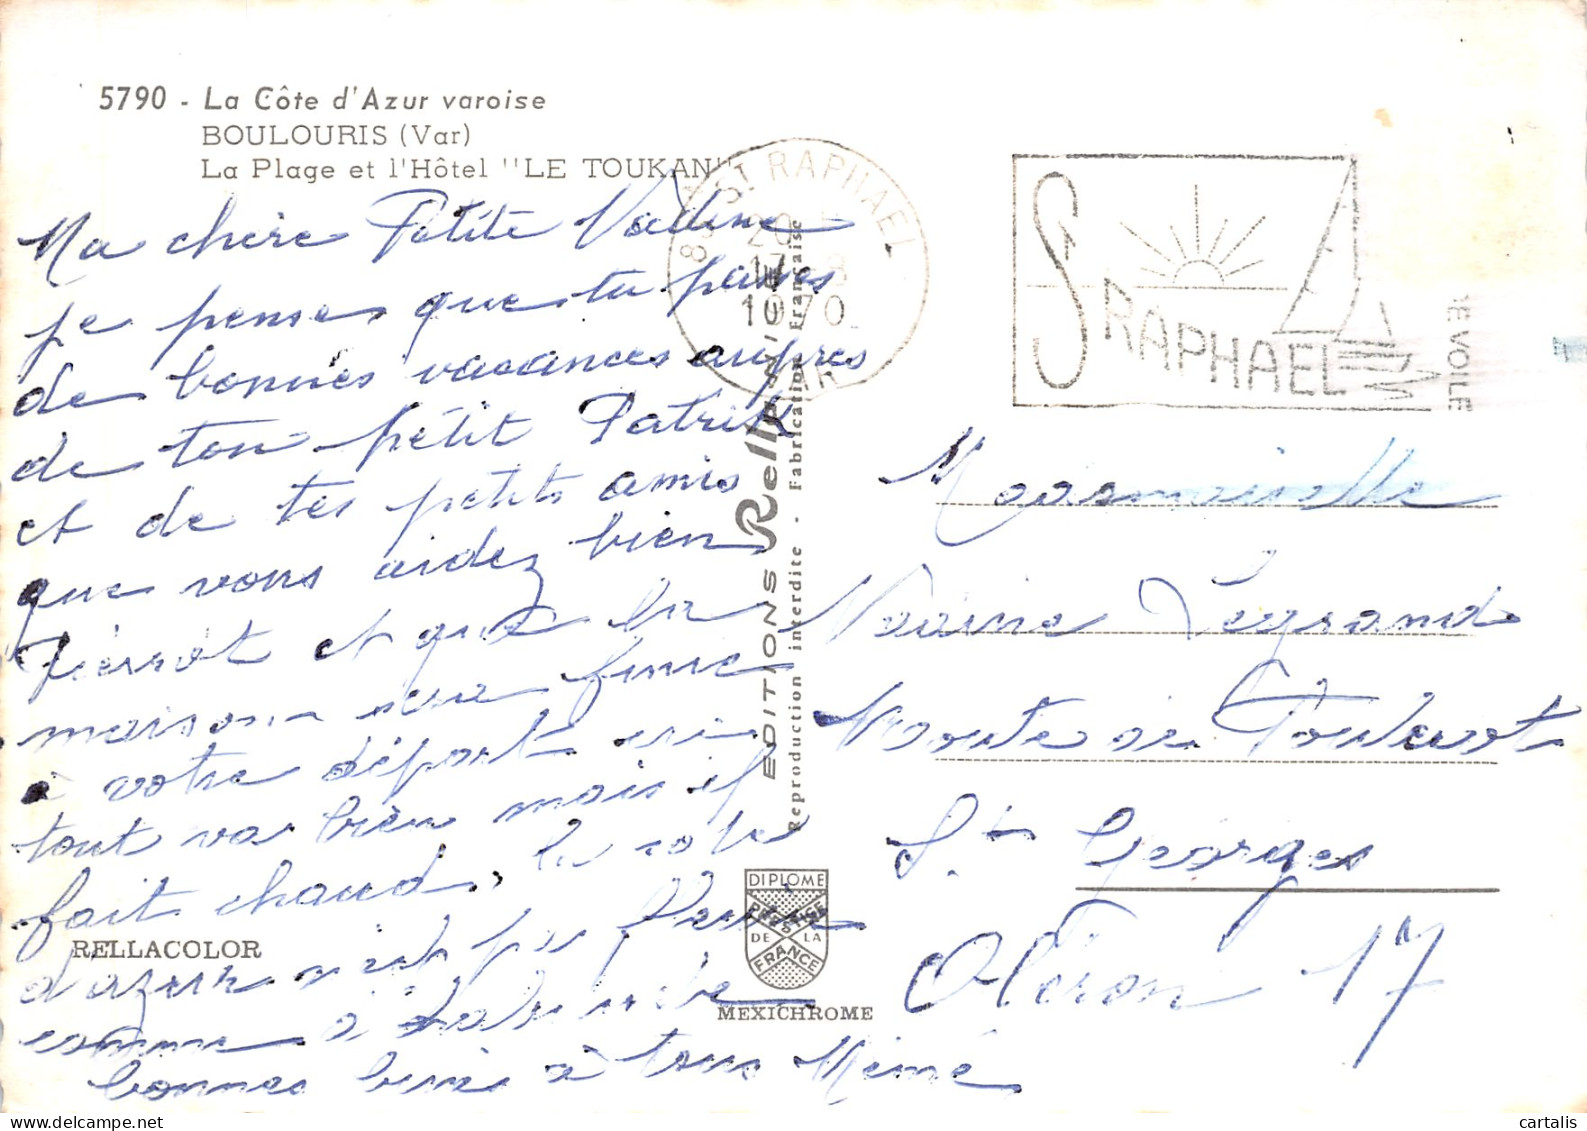 5790 - La Côte d'Azur varoise
BOULOURIS (Var)
La Plage et l'Hôtel "LE TOUKAN"
Ma chère Petite Nadine
je penses que tu passes
de bonnes vacances auprès
de ton petit Patrick
et de tes petits amis
que vous aidez bien
Pierrot et que la
maison sera finie
à votre départ ici
tout va bien mais il
fait chaud, la cote
d'azur n'est pas
comme à
bonnes bises à tous Mémé
83 ST RAPHAEL
20
17 - 8
1970
VAR
ST RAPHAEL
DE VOILE
EDITIONS Rella
Reproduction interdite - Fabrication Française
Mademoiselle
Nadine Legrand
Route de
St Georges
Oléron 17
RELLACOLOR
DIPLOME
PRESTIGE
DE LA
FRANCE
MEXICHROME
cartalis